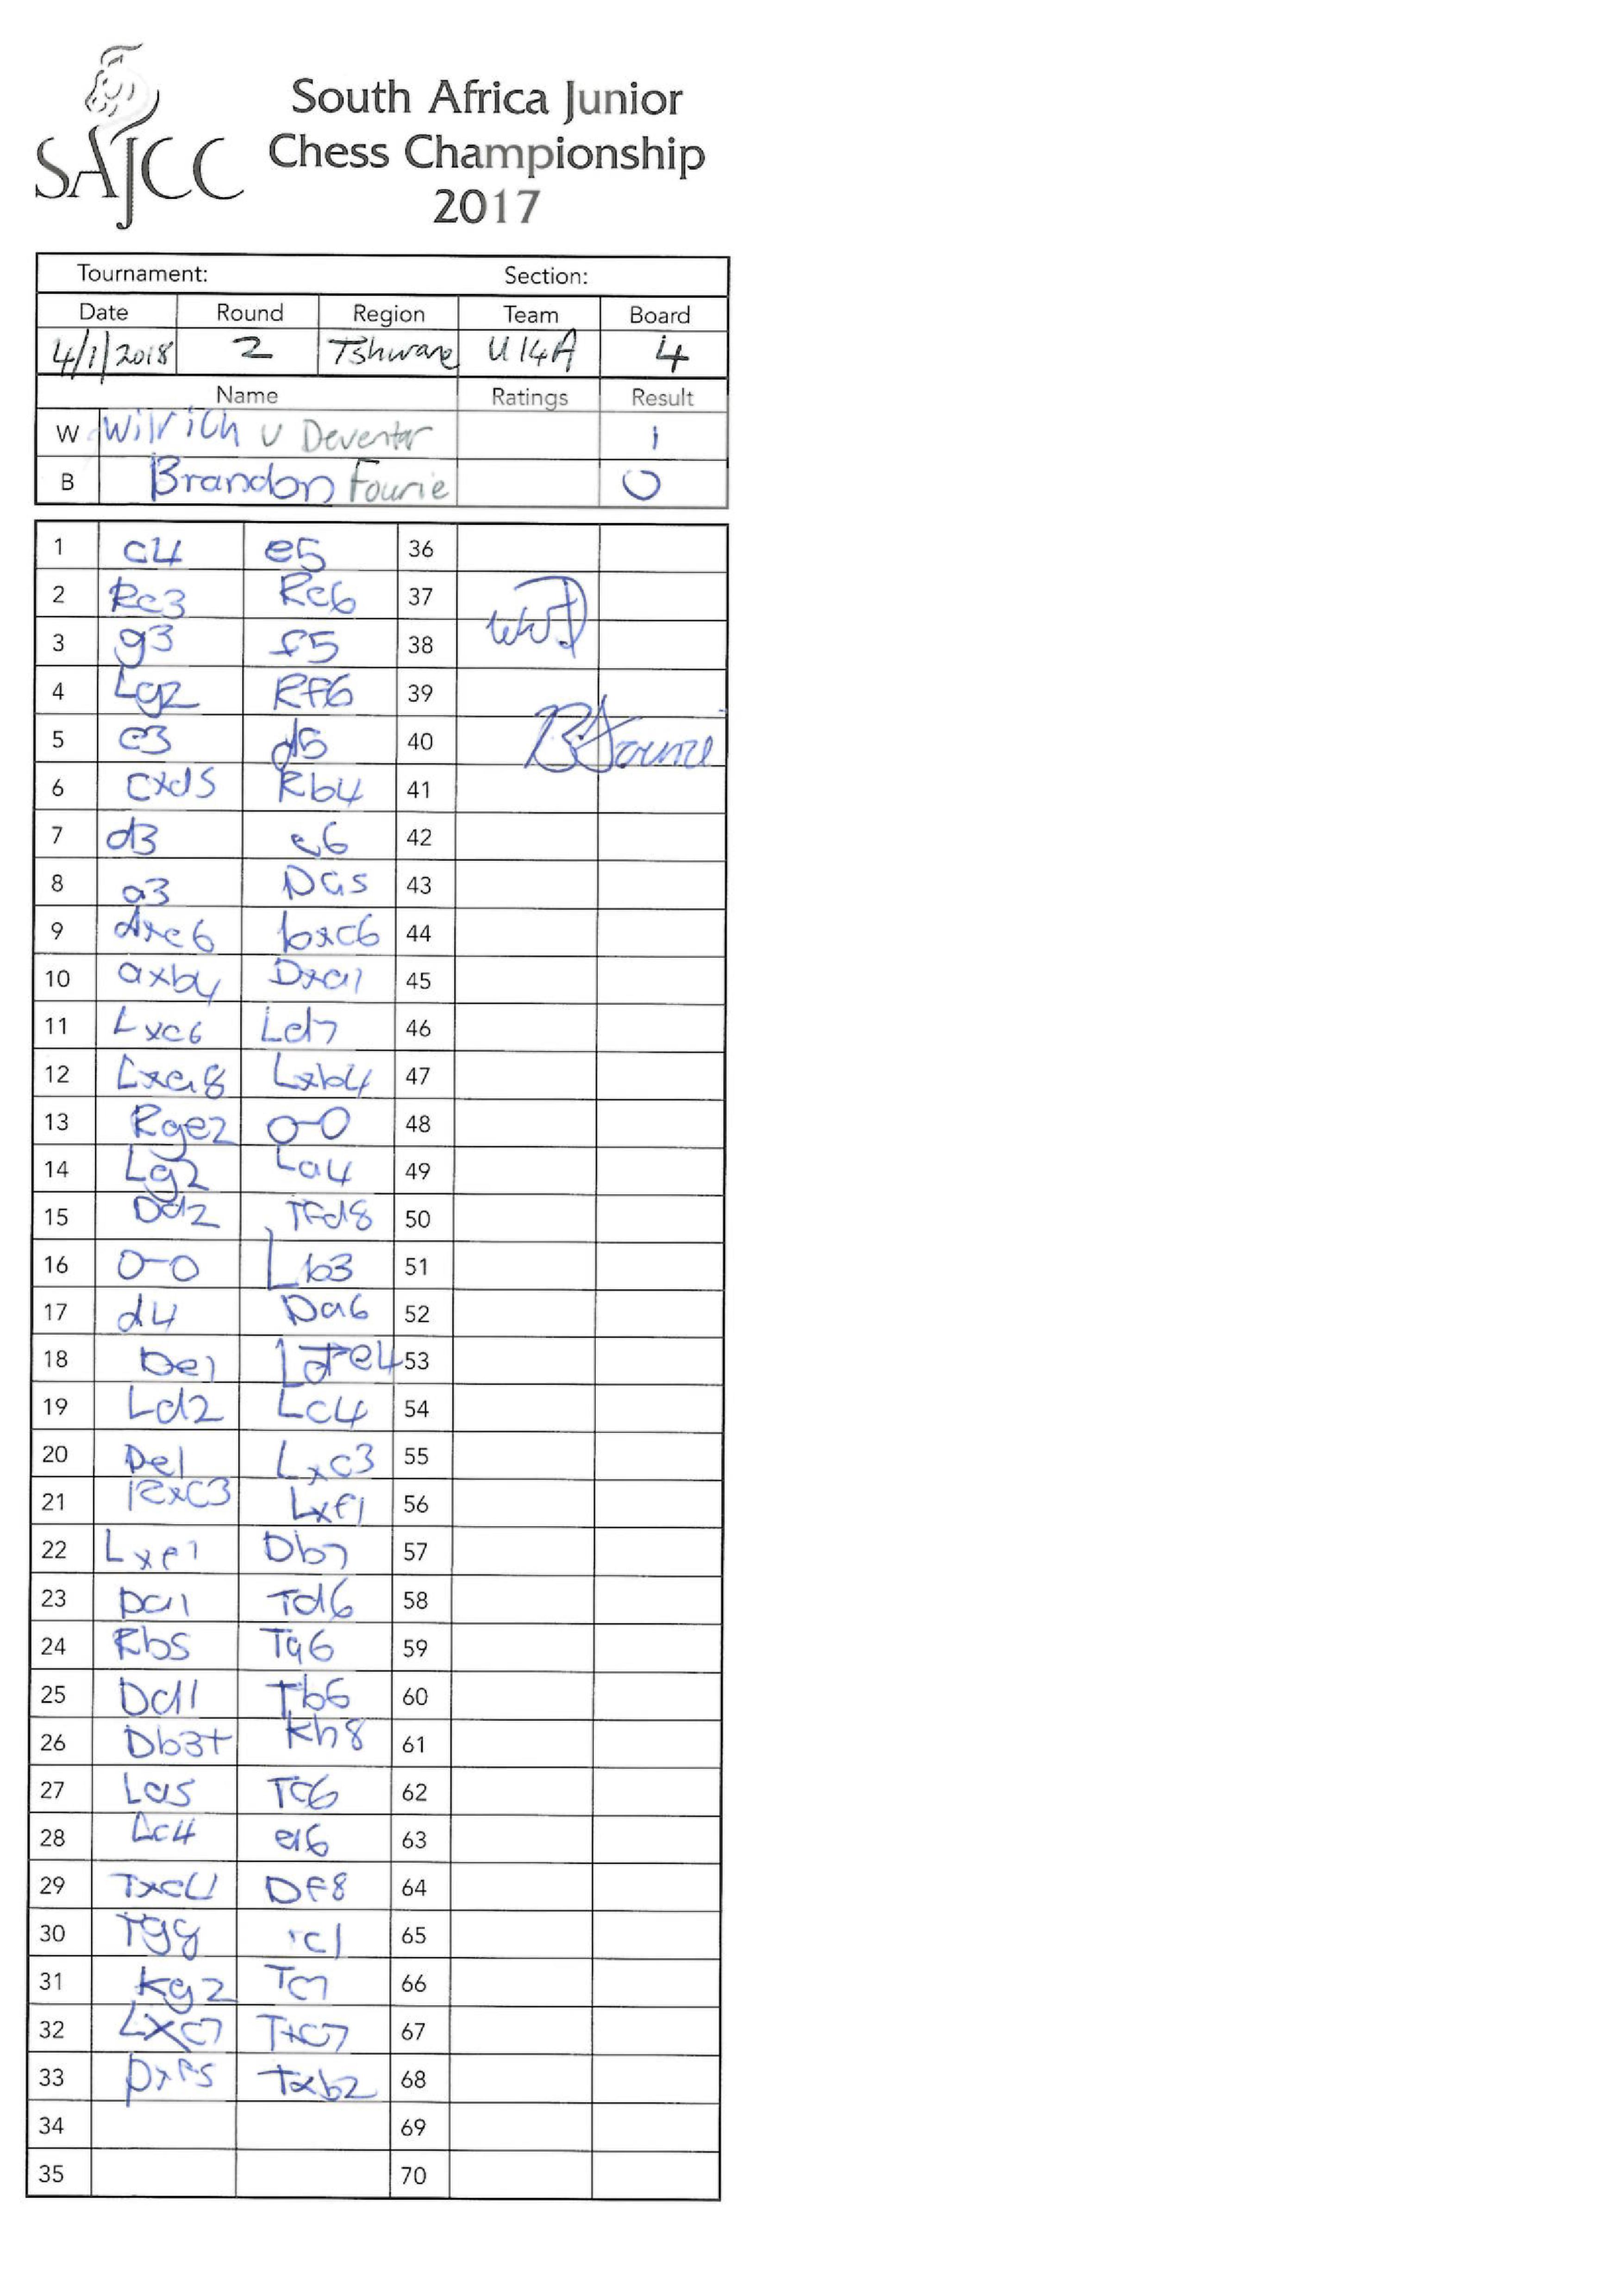 SAJCC
South Africa Junior
Chess Championship
2017
Tournament: Section:
Date Round Region Team Board
4/1/2018 2 Tshwane U14A 4
Name Ratings Result
W Wilrich v Deventer 1
B Brandon Fourie 0
1 c4 e5 36
2 Rc3 Rc6 37
3 g3 f5 38
4 Lg2 Rf6 39
5 e3 d5 40
6 cxd5 Rb4 41
7 d3 c6 42
8 a3 Da5 43
9 dxc6 bxc6 44
10 axb4 Dxa1 45
11 Lxc6 Ld7 46
12 Lxa8 Lxb4 47
13 Rge2 0-0 48
14 Lg2 La4 49
15 Dd2 TFd8 50
16 0-0 Lb3 51
17 d4 Da6 52
18 De1 53
19 Ld2 Lc4 54
20 De1 Lxc3 55
21 Rxc3 Lxf1 56
22 Lxf1 Db7 57
23 Da1 Td6 58
24 Rb5 Ta6 59
25 Dd1 Tb6 60
26 Db3+ Kh8 61
27 La5 Tc6 62
28 Lc4 a6 63
29 Txc4 Df8 64
30 Tg8 65
31 Kg2 Tc7 66
32 Lxc7 Txc7 67
33 Dxf5 Txb2 68
34 69
35 70